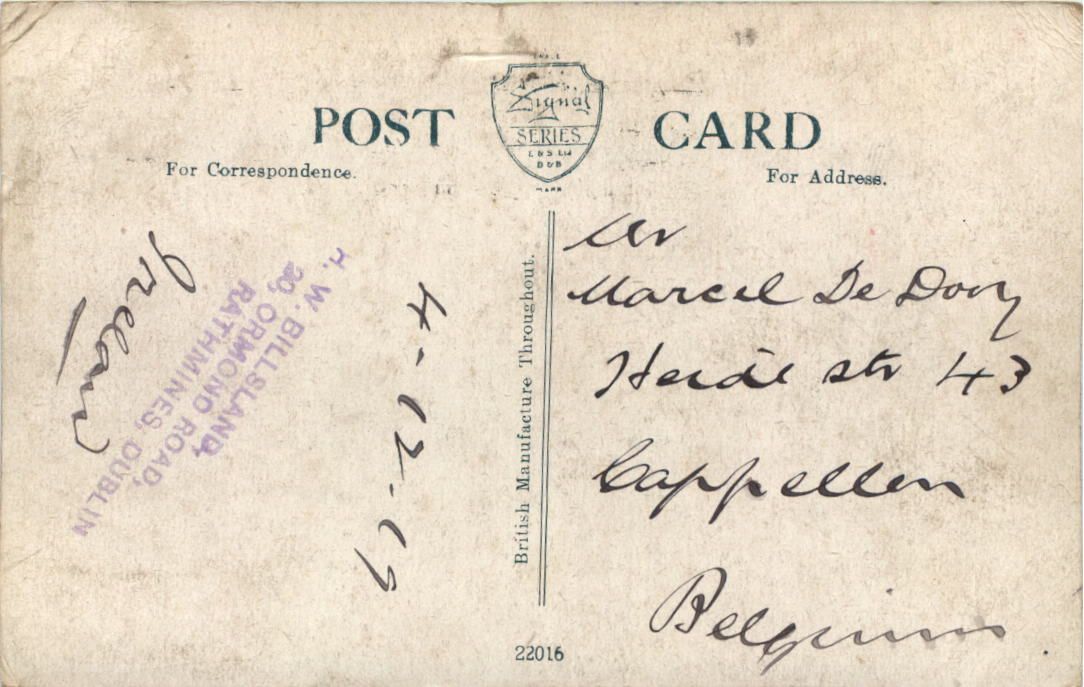 POST CARD
Signal
SERIES
E & S Ltd
D & B
MARK
For Correspondence.
For Address.
Ireland
H. W. BILLSLAND,
20, ORMOND ROAD,
RATHMINES, DUBLIN
4-12-19
British Manufacture Throughout.
Mr
Marcel De Dooy
Heide str 43
Cappellen
Belgium
22016